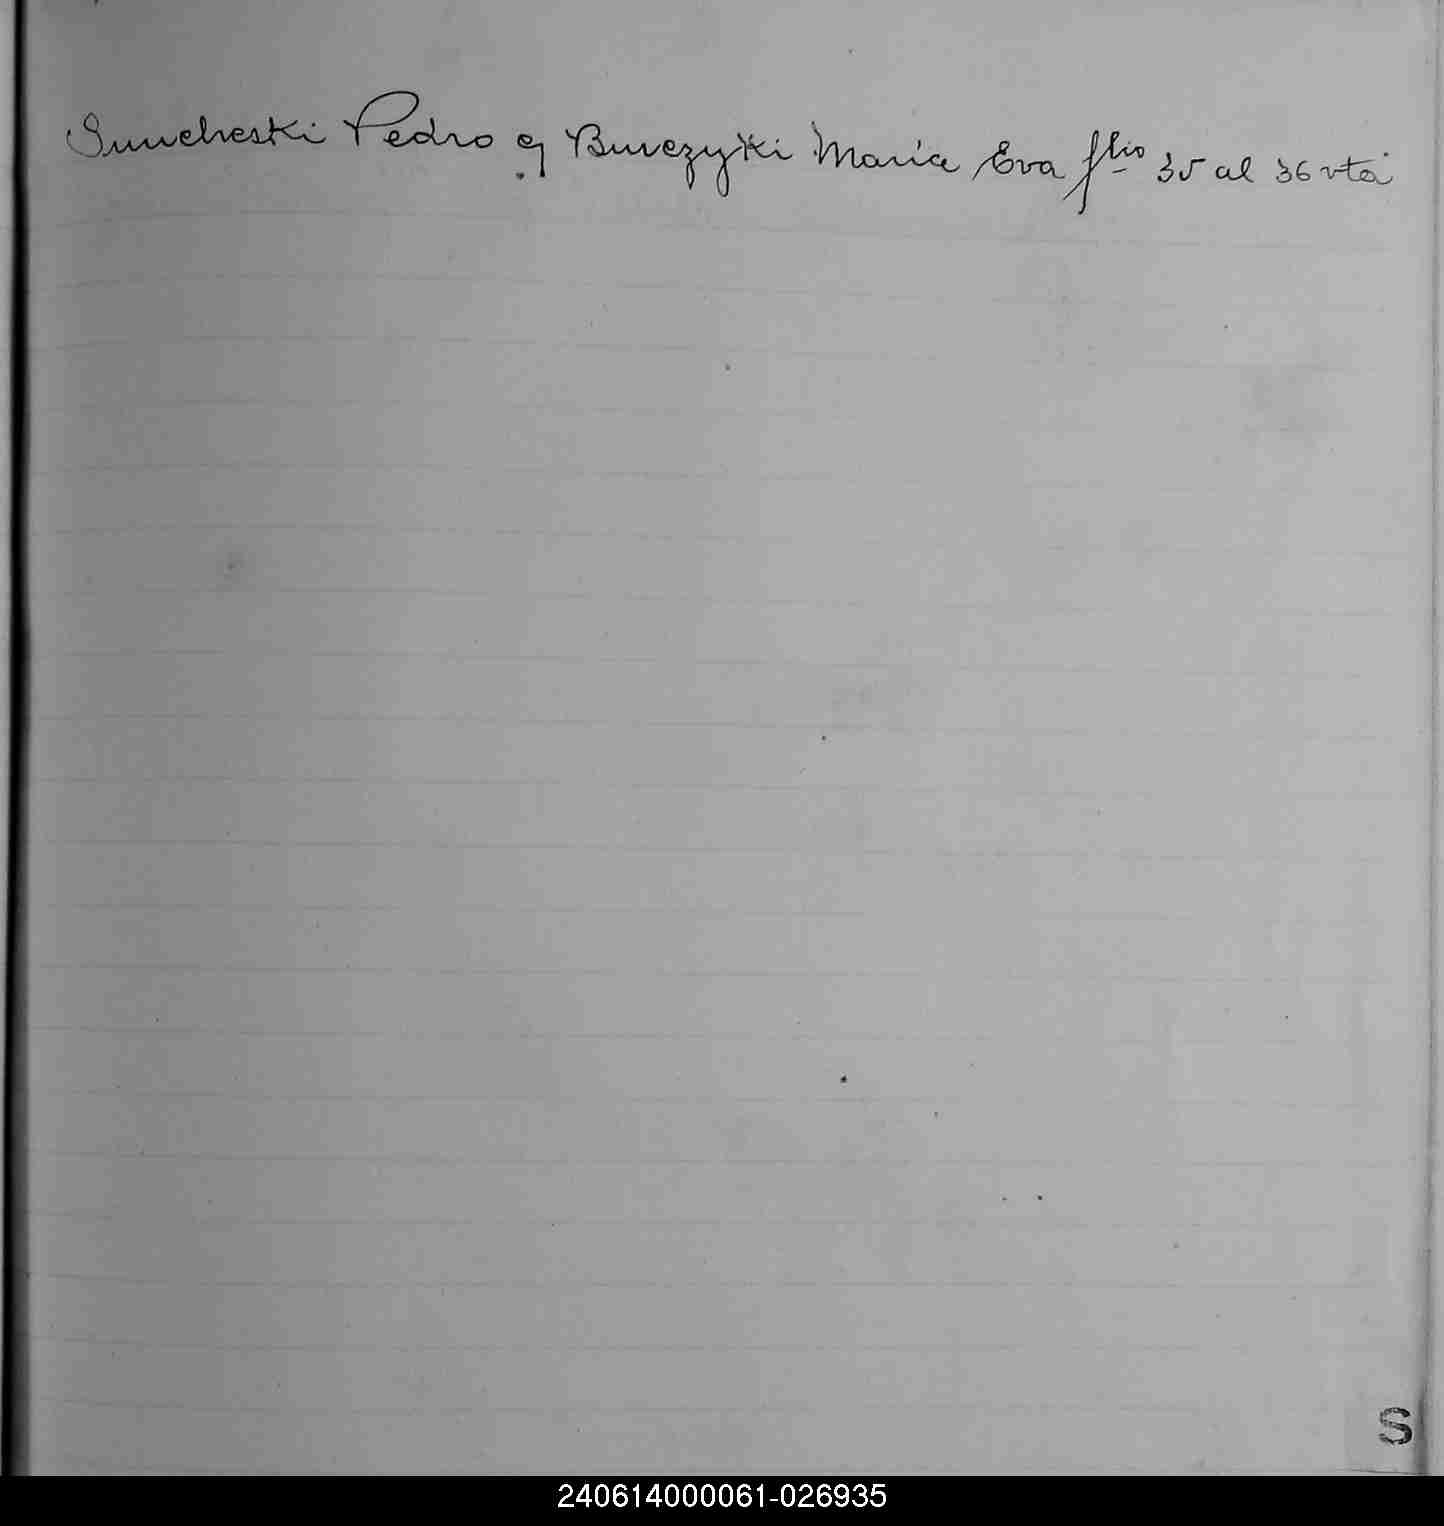 Suncheski Pedro cj Burczyki Maria Eva flio 35 al 36 vta
S
240614000061-026935